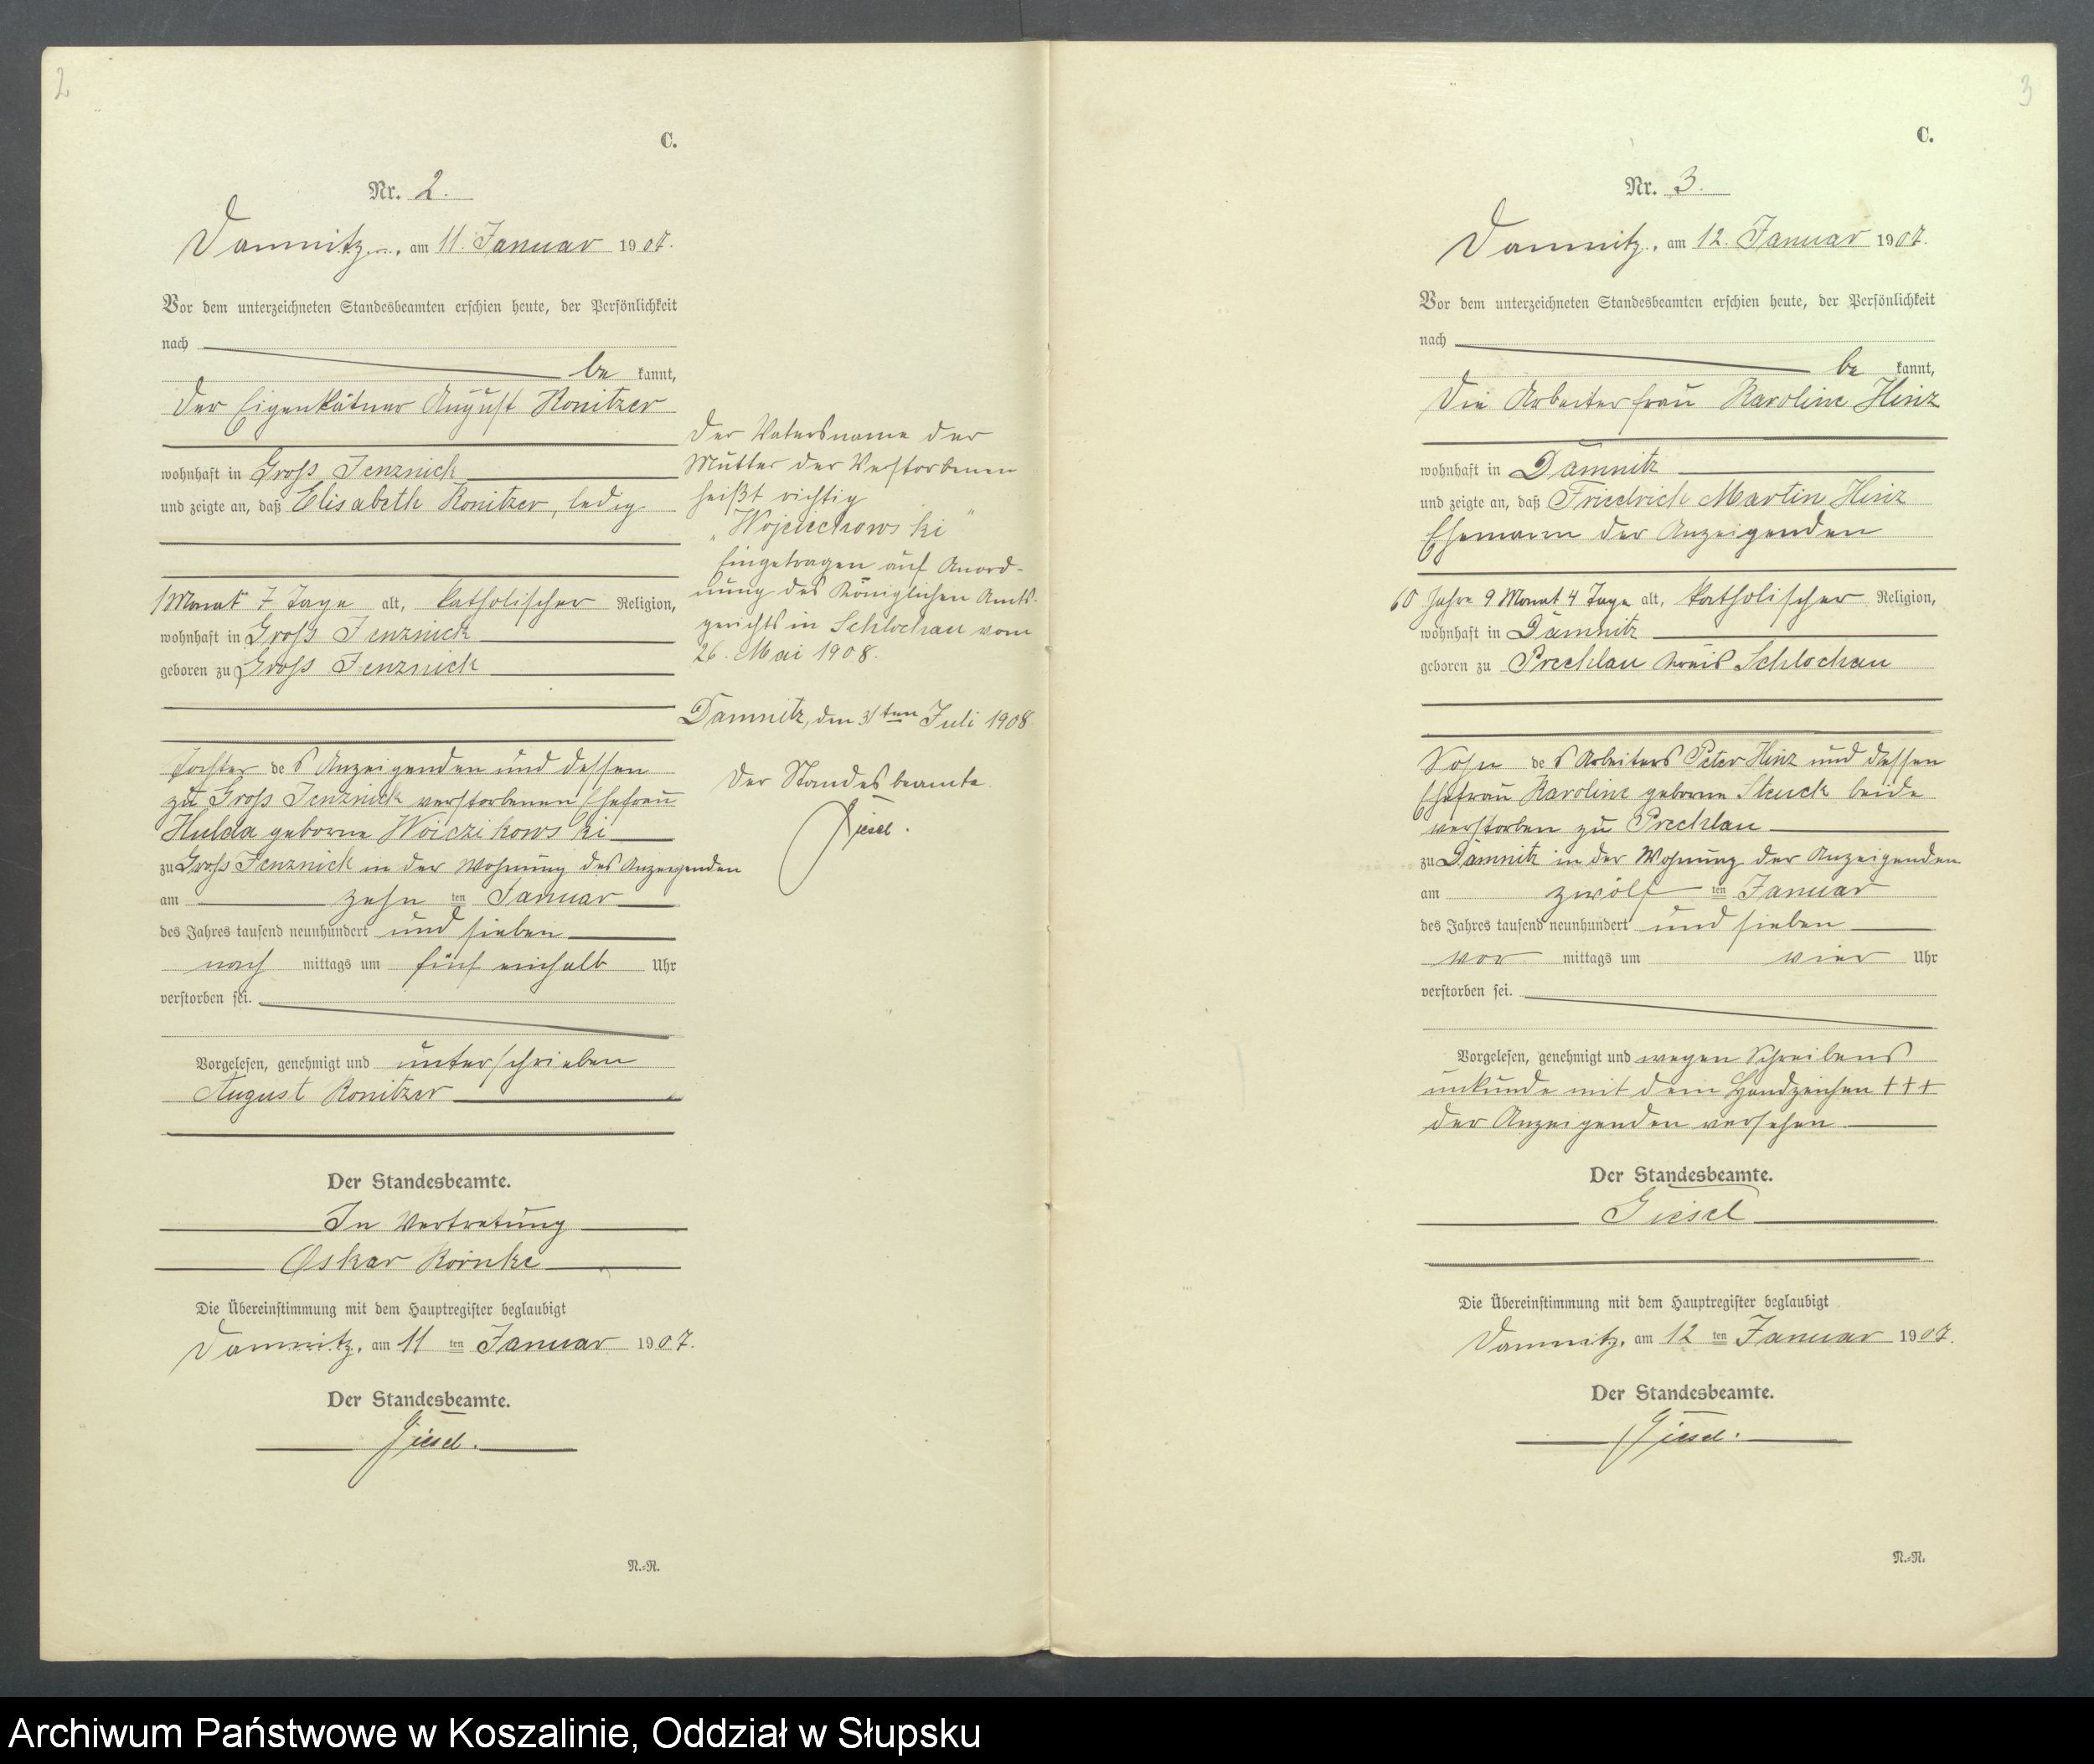 2
C.
Nr. 2.
Damnitz, am 11. Januar 1907.
Vor dem unterzeichneten Standesbeamten erschien heute, der Persönlichkeit
nach
be kannt,
der Eigenkätner August Konitzer
wohnhaft in Gross Jenznick
und zeigte an, daß Elisabeth Konitzer, ledig
1 Monat 7 Tage alt, katholischer Religion,
wohnhaft in Gross Jenznick
geboren zu Gross Jenznick
Tochter des Anzeigenden und dessen
zu Gross Jenznick verstorbenen Ehefrau
Hulda geborne Woiczikowski
zu Gross Jenznick in der Wohnung des Anzeigenden
am zehn ten Januar
des Jahres tausend neunhundert und sieben
nach mittags um fünf einhalb Uhr
verstorben sei.
Vorgelesen, genehmigt und unterschrieben
August Konitzer
Der Standesbeamte.
In Vertretung
Oskar
Die Übereinstimmung mit dem Hauptregister beglaubigt
Damnitz, am 11 ten Januar 1907.
Der Standesbeamte.
Giesel.
N.-R.
Der Vatersname der
Mutter der Verstorbenen
heißt richtig
„Wojciechowski"
Eingetragen auf Anord-
nung des Königlichen Amts-
gerichts in Schlochau vom
26. Mai 1908.
Damnitz, den 31ten Juli 1908
Der Standesbeamte.
Giesel.
3
C.
Nr. 3.
Damnitz, am 12. Januar 1907.
Vor dem unterzeichneten Standesbeamten erschien heute, der Persönlichkeit
nach
be kannt,
die Arbeiterfrau Karoline Hinz
wohnhaft in Damnitz
und zeigte an, daß Friedrich Martin Hinz
Ehemann der Anzeigenden
60 Jahre 9 Monat 4 Tage alt, katholischer Religion,
wohnhaft in Damnitz
geboren zu Prechlau Kreis Schlochau
Sohn des Arbeiters Peter Hinz und dessen
Ehefrau Karoline geborne beide
verstorben zu Prechlau
zu Damnitz in der Wohnung der Anzeigenden
am zwölf ten Januar
des Jahres tausend neunhundert und sieben
vor mittags um vier Uhr
verstorben sei.
Vorgelesen, genehmigt und wegen Schreibens
unkunde mit dem Handzeichen +++
der Anzeigenden versehen
Der Standesbeamte.
Giesel
Die Übereinstimmung mit dem Hauptregister beglaubigt
Damnitz, am 12 ten Januar 1907.
Der Standesbeamte.
Giesel.
N.-R.
Archiwum Państwowe w Koszalinie, Oddział w Słupsku